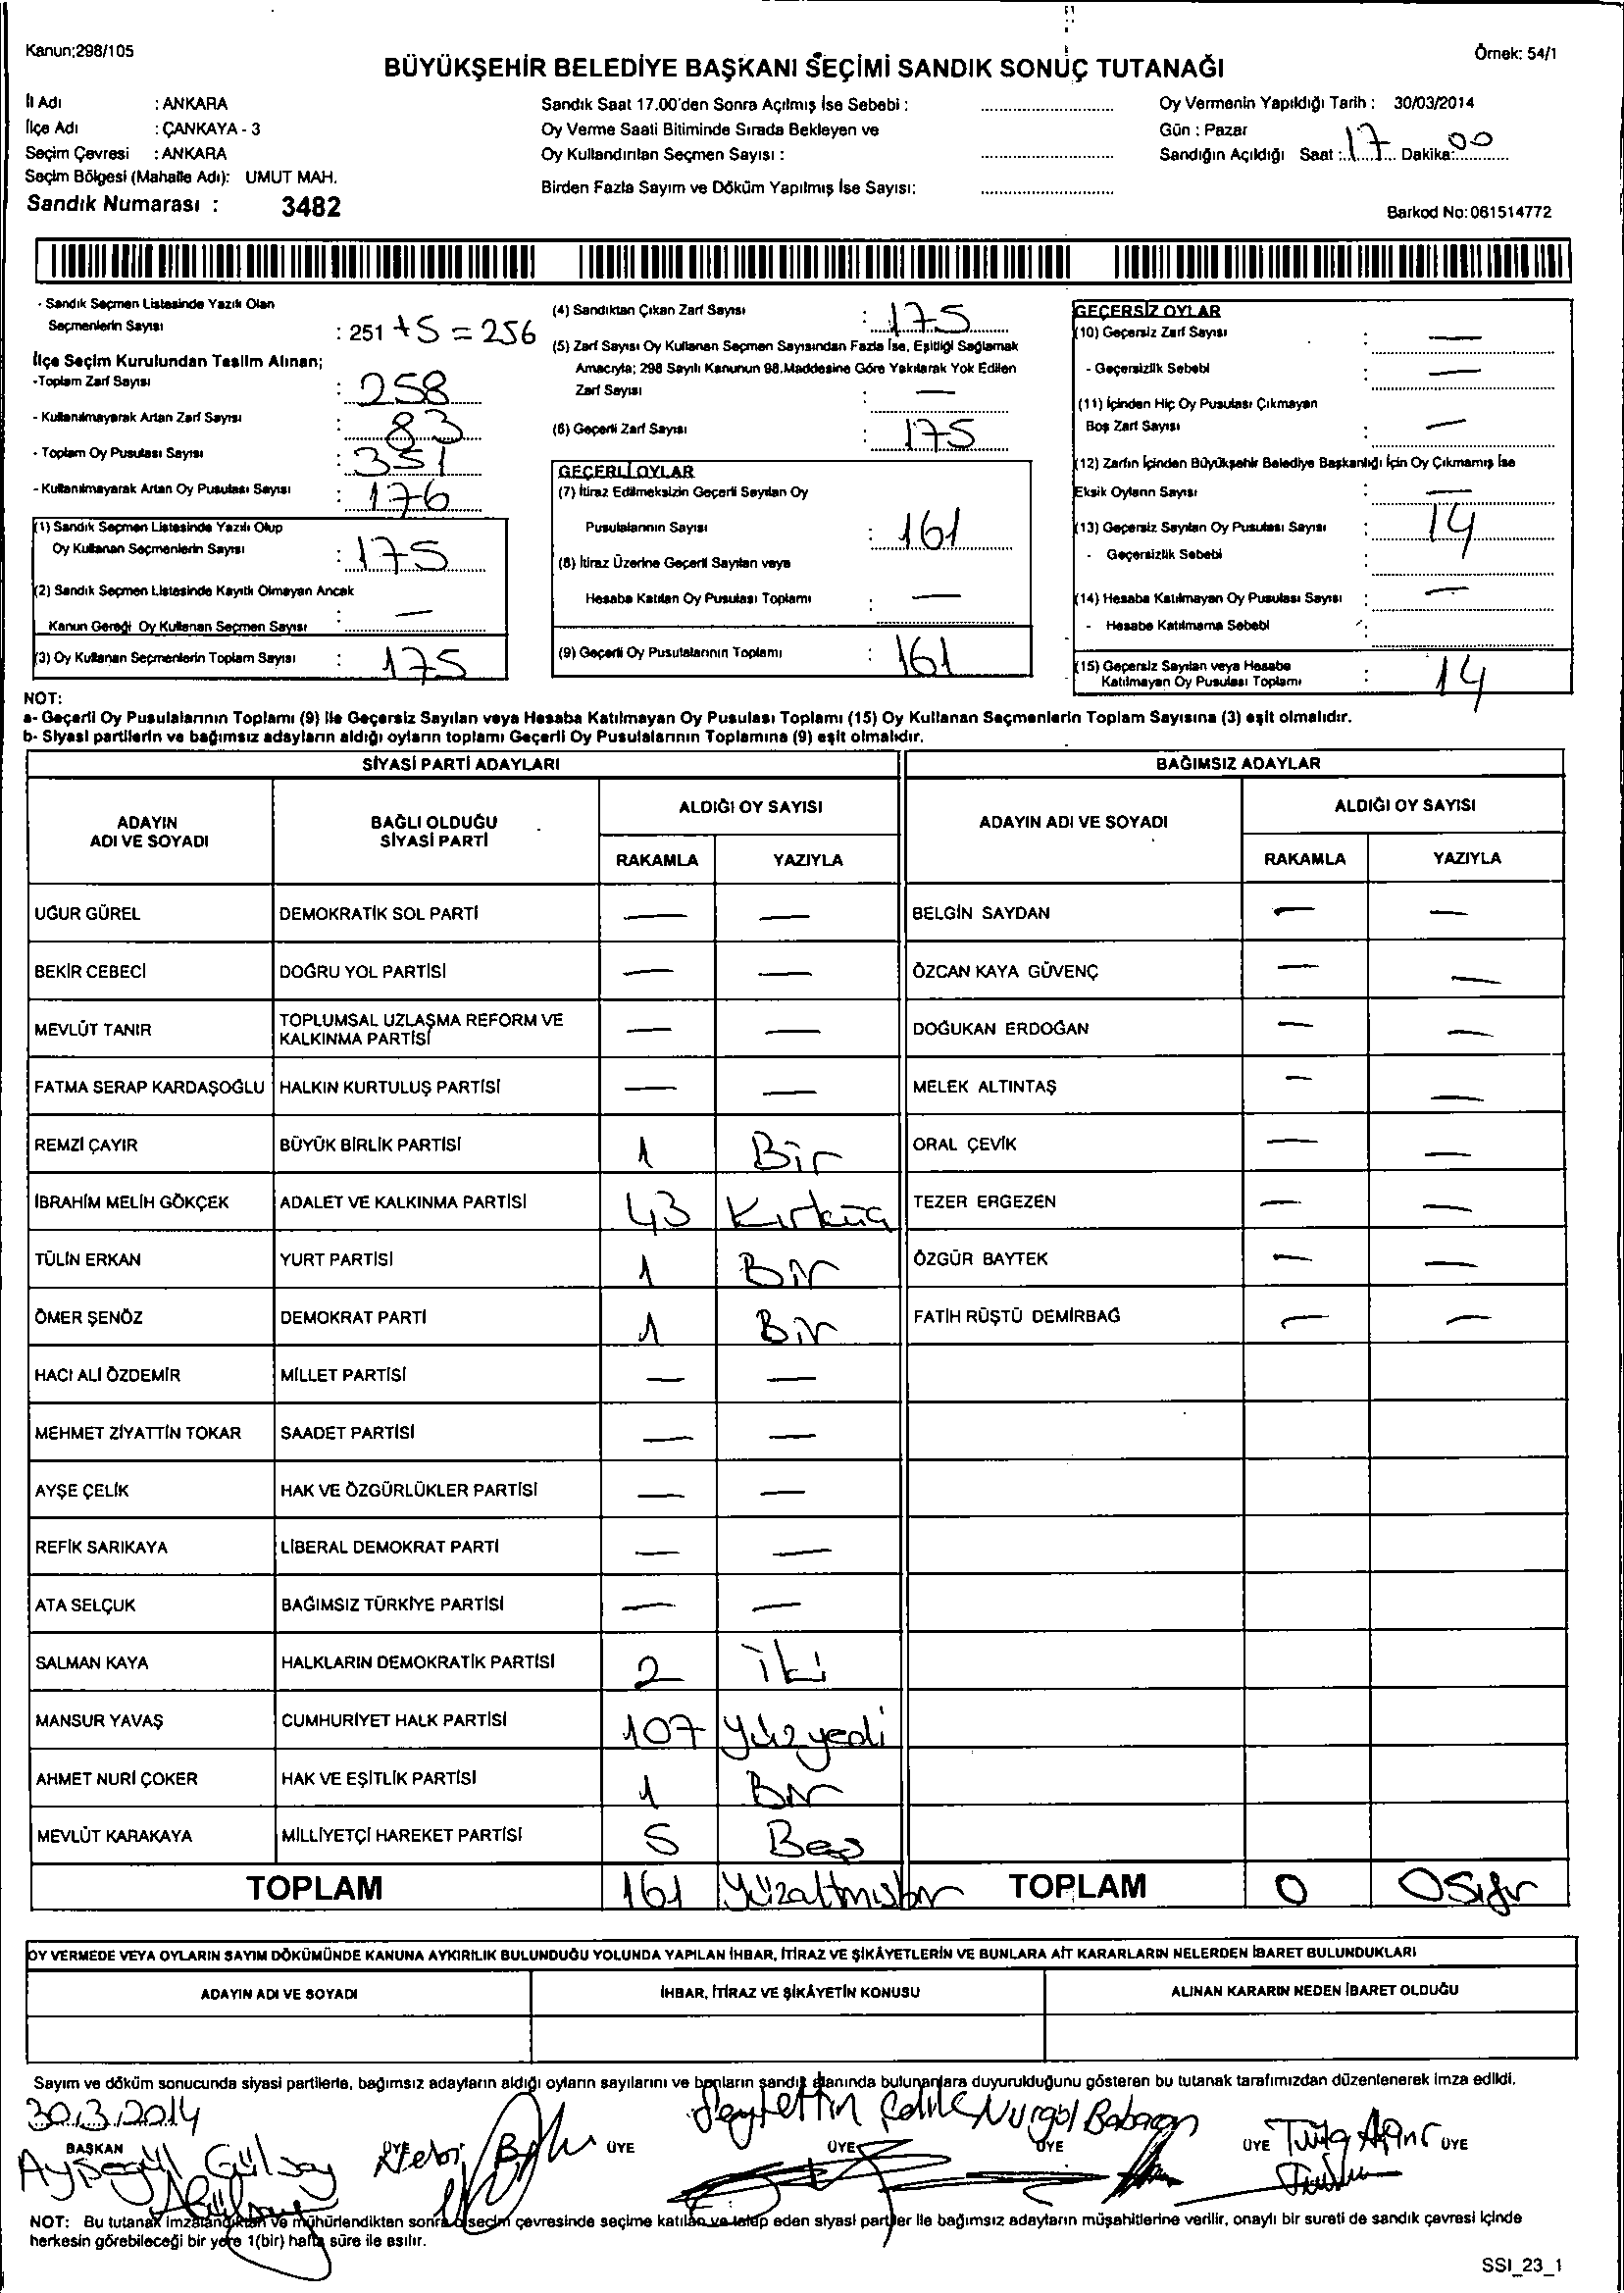 Kanun;298/105
Örnek: 54/1
BÜYÜKŞEHİR BELEDİYE BAŞKANI SEÇİMİ SANDIK SONUÇ TUTANAĞI
İl Adı : ANKARA
İlçe Adı : ÇANKAYA - 3
Seçim Çevresi : ANKARA
Seçim Bölgesi (Mahalle Adı): UMUT MAH.
Sandık Numarası : 3482
Sandık Saat 17.00'den Sonra Açılmış İse Sebebi :
Oy Verme Saati Bitiminde Sırada Bekleyen ve
Oy Kullandırılan Seçmen Sayısı :
Birden Fazla Sayım ve Döküm Yapılmış İse Sayısı:
Oy Vermenin Yapıldığı Tarih : 30/03/2014
Gün : Pazar
Sandığın Açıldığı Saat : 17 Dakika: 00
Barkod No: 061514772
- Sandık Seçmen Listesinde Yazılı Olan
Seçmenlerin Sayısı : 251 + 5 = 256
İlçe Seçim Kurulundan Teslim Alınan;
-Toplam Zarf Sayısı : 258
- Kullanılmayarak Artan Zarf Sayısı : 83
- Toplam Oy Pusulası Sayısı : 351
- Kullanılmayarak Artan Oy Pusulası Sayısı : 176
(1) Sandık Seçmen Listesinde Yazılı Olup
Oy Kullanan Seçmenlerin Sayısı : 175
(2) Sandık Seçmen Listesinde Kayıtlı Olmayan Ancak
Kanun Gereği Oy Kullanan Seçmen Sayısı : —
(3) Oy Kullanan Seçmenlerin Toplam Sayısı : 175
(4) Sandıktan Çıkan Zarf Sayısı : 175
(5) Zarf Sayısı Oy Kullanan Seçmen Sayısından Fazla İse, Eşitliği Sağlamak
Amacıyla; 298 Sayılı Kanunun 98.Maddesine Göre Yakılarak Yok Edilen
Zarf Sayısı : —
(6) Geçerli Zarf Sayısı : 175
GEÇERLİ OYLAR
(7) İtiraz Edilmeksizin Geçerli Sayılan Oy
Pusulalarının Sayısı : 161
(8) İtiraz Üzerine Geçerli Sayılan veya
Hesaba Katılan Oy Pusulası Toplamı : —
(9) Geçerli Oy Pusulalarının Toplamı : 161
GEÇERSİZ OYLAR
(10) Geçersiz Zarf Sayısı : —
- Geçersizlik Sebebi : —
(11) İçinden Hiç Oy Pusulası Çıkmayan
Boş Zarf Sayısı : —
(12) Zarfın İçinden Büyükşehir Belediye Başkanlığı İçin Oy Çıkmamış İse
Eksik Oyların Sayısı : —
(13) Geçersiz Sayılan Oy Pusulası Sayısı : 14
- Geçersizlik Sebebi :
(14) Hesaba Katılmayan Oy Pusulası Sayısı : —
- Hesaba Katılmama Sebebi :
(15) Geçersiz Sayılan veya Hesaba
Katılmayan Oy Pusulası Toplamı : 14
NOT:
a- Geçerli Oy Pusulalarının Toplamı (9) ile Geçersiz Sayılan veya Hesaba Katılmayan Oy Pusulası Toplamı (15) Oy Kullanan Seçmenlerin Toplam Sayısına (3) eşit olmalıdır.
b- Siyasi partilerin ve bağımsız adayların aldığı oyların toplamı Geçerli Oy Pusulalarının Toplamına (9) eşit olmalıdır.
SİYASİ PARTİ ADAYLARI
ADAYIN
ADI VE SOYADI
BAĞLI OLDUĞU
SİYASİ PARTİ
ALDIĞI OY SAYISI
RAKAMLA YAZIYLA
UĞUR GÜREL DEMOKRATİK SOL PARTİ — —
BEKİR CEBECİ DOĞRU YOL PARTİSİ — —
MEVLÜT TANIR TOPLUMSAL UZLAŞMA REFORM VE
KALKINMA PARTİSİ — —
FATMA SERAP KARDAŞOĞLU HALKIN KURTULUŞ PARTİSİ — —
REMZİ ÇAYIR BÜYÜK BİRLİK PARTİSİ 1 Bir
İBRAHİM MELİH GÖKÇEK ADALET VE KALKINMA PARTİSİ 43 Kırküç
TÜLİN ERKAN YURT PARTİSİ 1 Bir
ÖMER ŞENÖZ DEMOKRAT PARTİ 1 Bir
HACI ALİ ÖZDEMİR MİLLET PARTİSİ — —
MEHMET ZİYATTİN TOKAR SAADET PARTİSİ — —
AYŞE ÇELİK HAK VE ÖZGÜRLÜKLER PARTİSİ — —
REFİK SARIKAYA LİBERAL DEMOKRAT PARTİ — —
ATA SELÇUK BAĞIMSIZ TÜRKİYE PARTİSİ — —
SALMAN KAYA HALKLARIN DEMOKRATİK PARTİSİ 2 iki
MANSUR YAVAŞ CUMHURİYET HALK PARTİSİ 107 yüzyedi
AHMET NURİ ÇOKER HAK VE EŞİTLİK PARTİSİ 1 Bir
MEVLÜT KARAKAYA MİLLİYETÇİ HAREKET PARTİSİ 5 Beş
TOPLAM 161 yüzaltmışbir
BAĞIMSIZ ADAYLAR
ADAYIN ADI VE SOYADI
ALDIĞI OY SAYISI
RAKAMLA YAZIYLA
BELGİN SAYDAN — —
ÖZCAN KAYA GÜVENÇ — —
DOĞUKAN ERDOĞAN — —
MELEK ALTINTAŞ — —
ORAL ÇEVİK — —
TEZER ERGEZEN — —
ÖZGÜR BAYTEK — —
FATİH RÜŞTÜ DEMİRBAĞ — —
TOPLAM 0 0 Sıfır
OY VERMEDE VEYA OYLARIN SAYIM DÖKÜMÜNDE KANUNA AYKIRILIK BULUNDUĞU YOLUNDA YAPILAN İHBAR, İTİRAZ VE ŞİKÂYETLERİN VE BUNLARA AİT KARARLARIN NELERDEN İBARET BULUNDUKLARI
ADAYIN ADI VE SOYADI
İHBAR, İTİRAZ VE ŞİKÂYETİN KONUSU
ALINAN KARARIN NEDEN İBARET OLDUĞU
Sayım ve döküm sonucunda siyasi partilerle, bağımsız adayların aldığı oyların sayılarını ve bunların sandık alanında bulunanlara duyurulduğunu gösteren bu tutanak tarafımızdan düzenlenerek imza edildi.
30.3.2014
BAŞKAN ÜYE ÜYE ÜYE ÜYE ÜYE ÜYE
Ayşegül Gülsoy Nebi Seyfettin Nurgül
NOT: Bu tutanak imzalandıktan ve mühürlendikten sonra o seçim çevresinde seçime katılan ve talep eden siyasi partiler ile bağımsız adayların müşahitlerine verilir, onaylı bir sureti de sandık çevresi içinde
herkesin görebileceği bir yere 1(bir) hafta süre ile asılır.
SSI_23_1